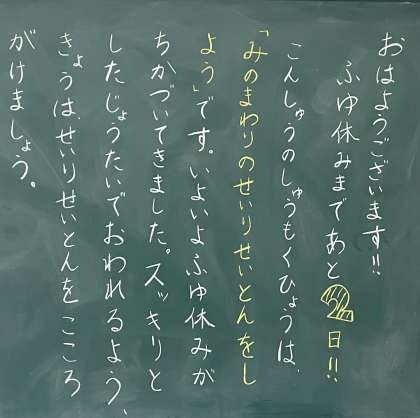 おはようございます!!
ふゆ休みまであと2日!!
こんしゅうのしゅうもくひょうは、
「みのまわりのせいりせいとんをし
よう」です。いよいよふゆ休みが
ちかづいてきました。スッキリと
したじょうたいでおわれるよう、
きょうは、せいりせいとんをこころ
がけましょう。